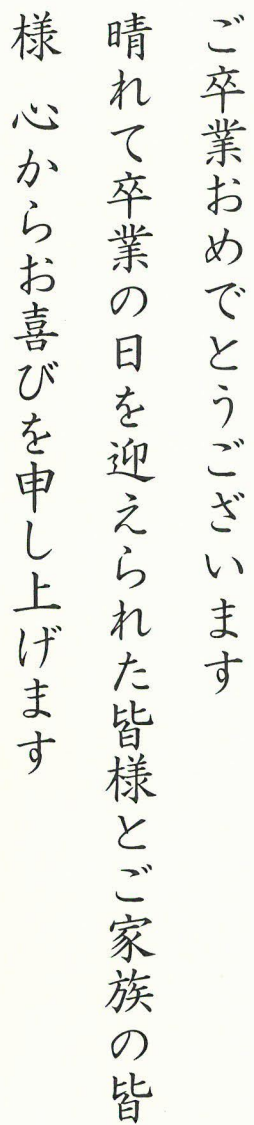 ご卒業おめでとうございます
晴れて卒業の日を迎えられた皆様とご家族の皆
様 心からお喜びを申し上げます